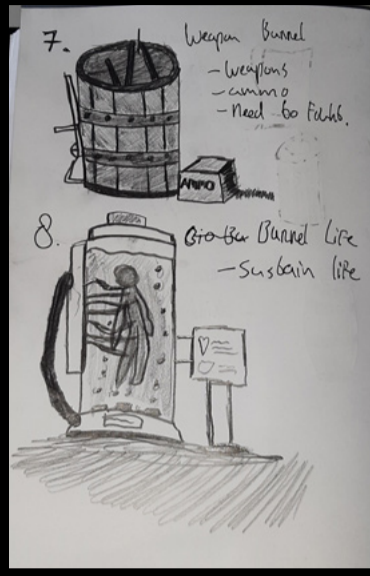 7. Weapon Barrel
- Weapons
- ammo
- Need to
AMMO
8. Barrel Life
- Sustain life